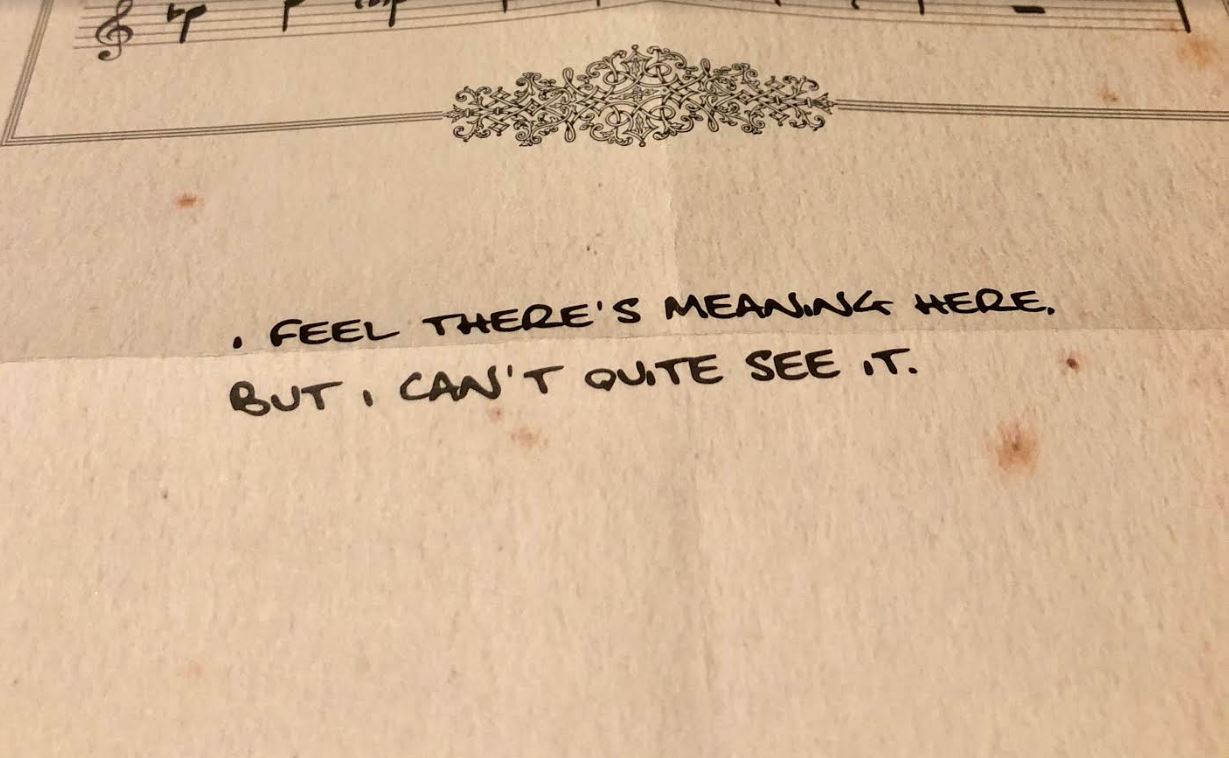 I FEEL THERE'S MEANING HERE.
BUT I CAN'T QUITE SEE IT.